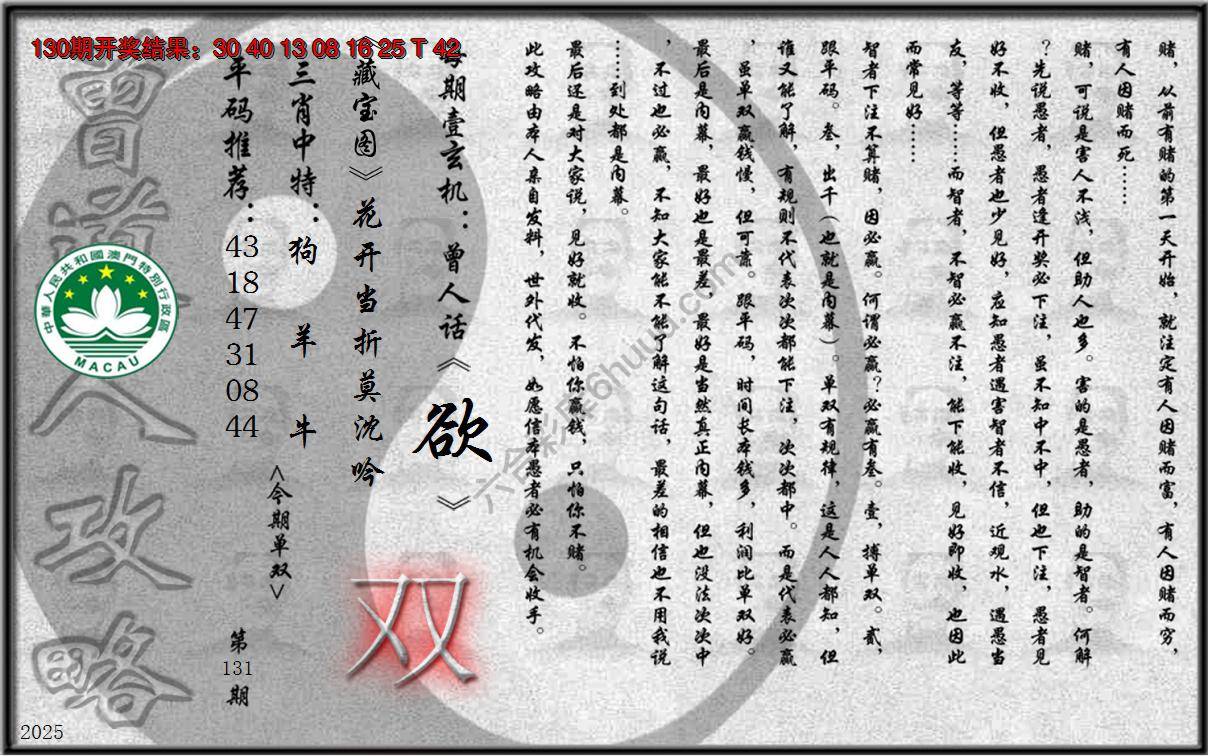 130期开奖结果：30 40 13 08 16 25 T 42
赌，从前有赌的第一天开始，就注定有人因赌而富，有人因赌而穷，
有人因赌而死……
赌，可说是害人不浅，但助人也多。害的是愚者，助的是智者。何解
？先说愚者，愚者逢开奖必下注，虽不知中不中，但也下注，愚者见
好不收，但愚者也少见好，应知愚者遇害智者不信，近观水，遇愚当
友，等等……而智者，不智必赢不注，能下能收，见好即收，也因此
而常见好……
智者下注不算赌，因必赢。何谓必赢？必赢有叁。壹，搏单双。贰，
跟平码。叁，出千（也就是内幕）。单双有规律，这是人人都知，但
谁又能了解，有规则不代表次次都能下注，次次都中。而是代表必赢
，虽单双赢钱慢，但可靠。跟平码，时间长本钱多，利润比单双好。
最后是内幕，最好也是最差，最好是当然真正内幕，但也没法次次中
，不过也必赢，不知大家能不能了解这句话，最差的相信也不用我说
……到处都是内幕。
最后还是对大家说，见好就收。不怕你赢钱，只怕你不赌。
此攻略由本人亲自发料，世外代发，如愿信本愚者必有机会收手。
每期壹玄机：曾人话《欲》
《藏宝图》花开当折莫沈吟
双
三肖中特：狗 羊 牛
<今期单双>
平码推荐：43 18 47 31 08 44
第131期
曾道人攻略
中華人民共和國澳門特別行政區
MACAU
六合彩库6huuu.com
2025